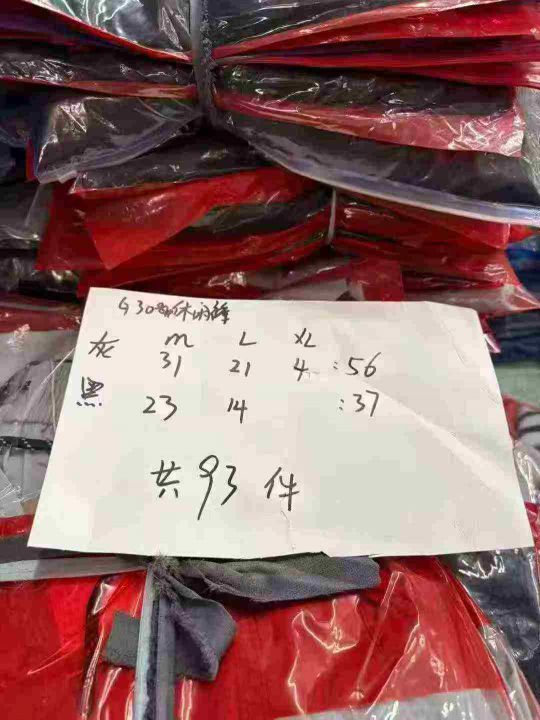 G30 休闲裤
灰 M L XL
31 21 4 :56
黑 23 14 :37
共93件